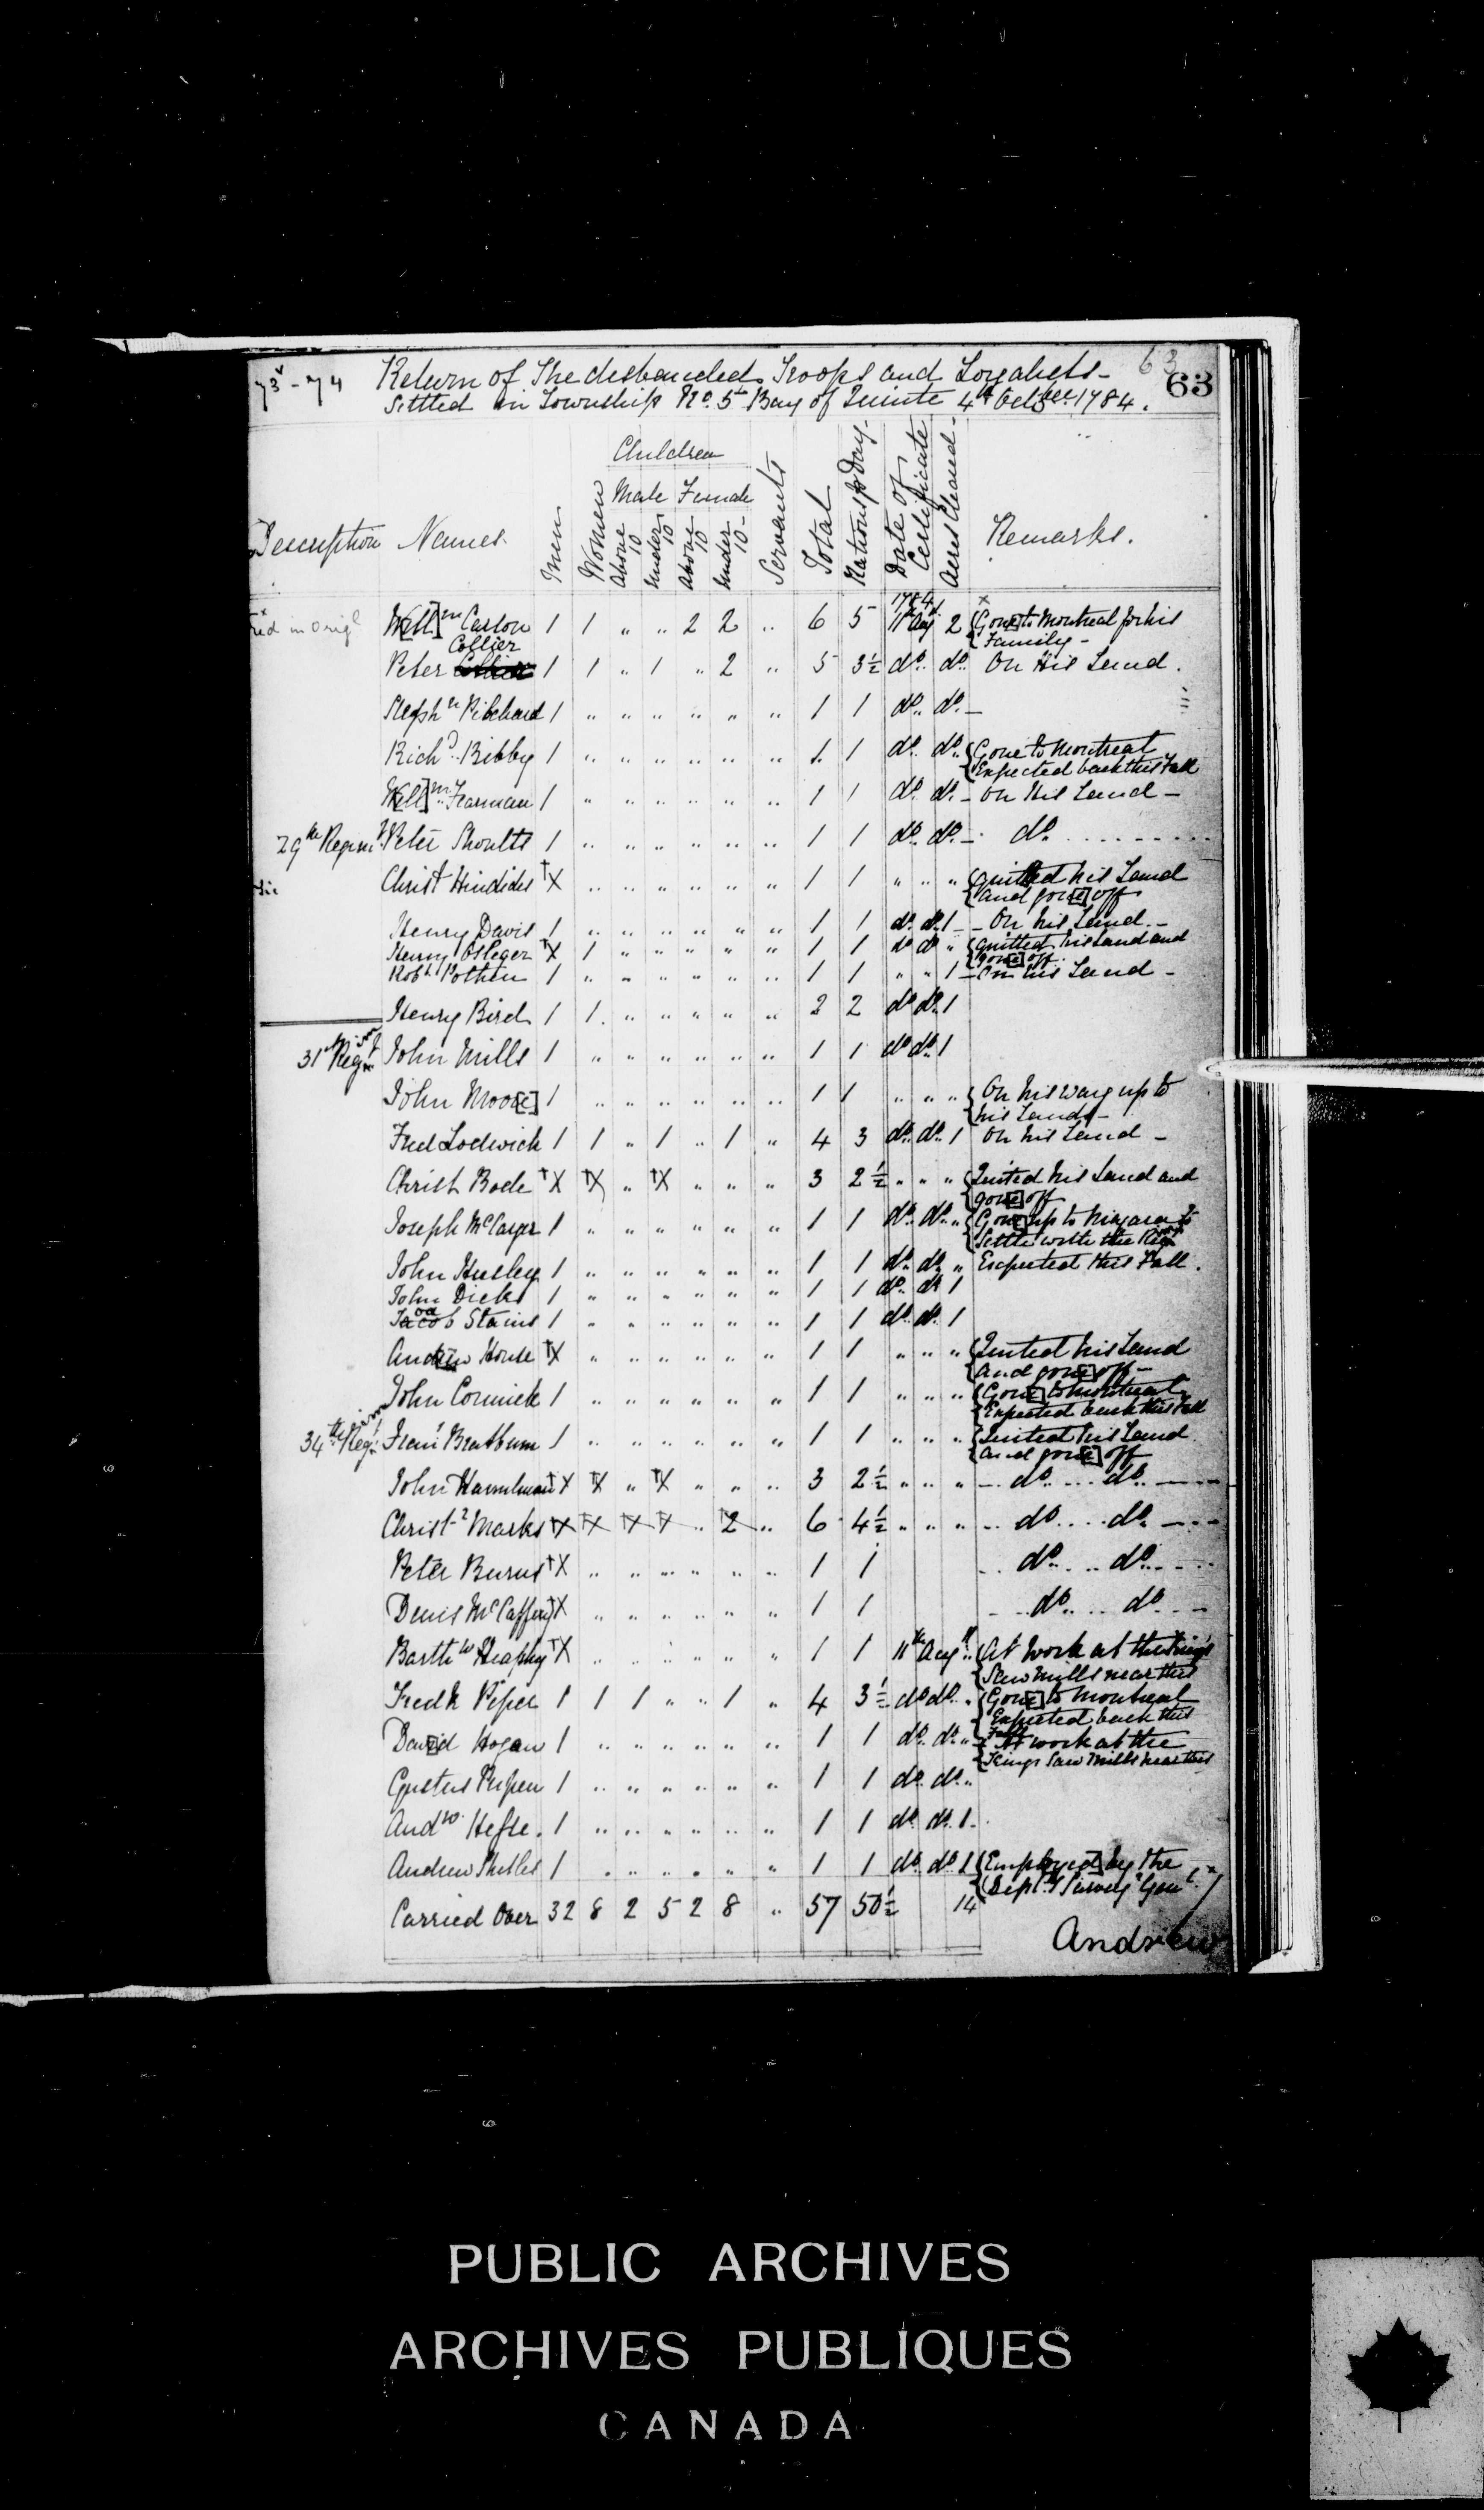 63
73-74 Return of The disbanded Troops and Loyalists - 63
Settled in Township No. 5 Bay of Quinte 4th Octber 1784.
Children
Male Female
Description Names. Men Women Above 10 Under 10 Above 10 Under 10 Servants Total Rations p Day Date of Certificate Acres Cleared Remarks.
1784
in Origl W[ill]m Carson 1 1 " " 2 2 " 6 5 11th Augst 2 {Gon[e] to Montreal for his
Family -
Collier
Peter 1 1 " 1 " 2 " 5 3½ do. do. On His Land.
Stephn Pitchard 1 " " " " " " 1 1 do. do. -
Richd. Bibby 1 " " " " " " 1 1 do. do. {Gone to Montreal
Expected back this Fall
W[ill]m. Fearman 1 " " " " " " 1 1 do. do. - On His Land -
29th Regimt Peter Shoults 1 " " " " " " 1 1 do. do. - do.
Christ Hindides X " " " " " " 1 1 " " " {quitted his Land
and gon[e] off
Henry Davis 1 " " " " " " 1 1 do. do. 1 - On his Land. -
Henry Osleger X 1 " " " " " 1 1 do do " {quitted his Land and
gon[e] off.
Robt Pothen 1 " " " " " " 1 1 " " 1 - On his Land -
Henry Bird 1 1 " " " " " 2 2 do do 1
31st Regimt John Mills 1 " " " " " " 1 1 do do 1
John Moor[e] 1 " " " " " " 1 1 " " " {On his way up to
his Lands -
Fred Lodwick 1 1 " 1 " 1 " 4 3 do. do. 1 On his Land -
Christ Bode X X " X " " " 3 2½ " " " {Quited his Land and
gon[e] off
Joseph McCarger 1 " " " " " " 1 1 do. do. " {Gon[e] up to Niagara to
Settle with the Regt
John Husley 1 " " " " " " 1 1 do. do. " Expected this Fall.
John Dicks 1 " " " " " " 1 1 do. do 1
Jacob Stains 1 " " " " " " 1 1 do. do. 1
Andrew House X " " " " " " 1 1 " " " {Quited his Land
and gon[e] off -
John Cormick 1 " " " " " " 1 1 " " " {Gon[e] to Montreal
Expected back this Fall
34th Regimt Frans Bratburn 1 " " " " " " 1 1 " " " {Quited his Land
and gon[e] off
John Hamilman X X " X " " " 3 2½ " " " - do. ... do. -
Christr Marks X X X X " 2 " 6 4½ " " " do. ... do. -
Peter Burns X " " " " " " 1 1 do. ... do.
Denis McCaffery X " " " " " " 1 1 do. ... do. -
Barthw Heaphy X " " " " " " 1 1 11th Augt " {At Work at the King's
Saw Mills near this
Fredk Piper 1 1 1 " " 1 " 4 3½ do do. " {Gon[e] to Montreal
Expected back this
Fall
Dav[i]d Hogan 1 " " " " " " 1 1 do. do. " {At work at the
Kings Saw Mills near this
Gustus Pupen 1 " " " " " " 1 1 do. do. "
Andw. Hefse. 1 " " " " " " 1 1 do. do. 1.
Andrew Shibles 1 " " " " " " 1 1 do. do. 1 {Employ[e]d by the
Depty Survey Genl.
Carried Over 32 8 2 5 2 8 " 57 50½ 14
Andrew
PUBLIC ARCHIVES
ARCHIVES PUBLIQUES
CANADA